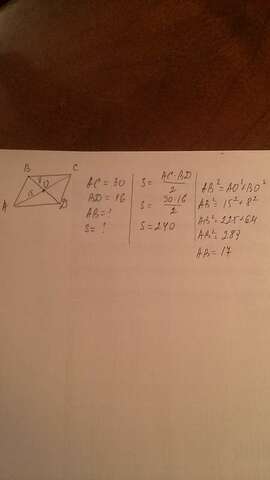 B
C
8
O
15
A
D
AC = 30
BD = 16
AB = ?
S = ?
S = AC·BD / 2
S = 30·16 / 2
S = 240
AB² = AO² + BO²
AB² = 15² + 8²
AB² = 225 + 64
AB² = 289
AB = 17